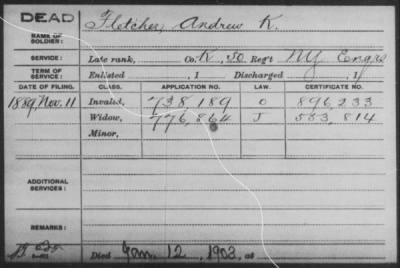 DEAD
Fletcher, Andrew K.
NAME OF SOLDIER:
SERVICE: Late rank, Co. K, 50 Reg't NY Engrs
TERM OF SERVICE: Enlisted , 1 Discharged , 1
DATE OF FILING. CLASS. APPLICATION NO. LAW. CERTIFICATE NO.
1889, Nov. 11 Invalid, 738,189 O 896,233
Widow, 776,864 J 583,814
Minor,
ADDITIONAL SERVICES:
REMARKS:
Died Jan. 12, 1903, at